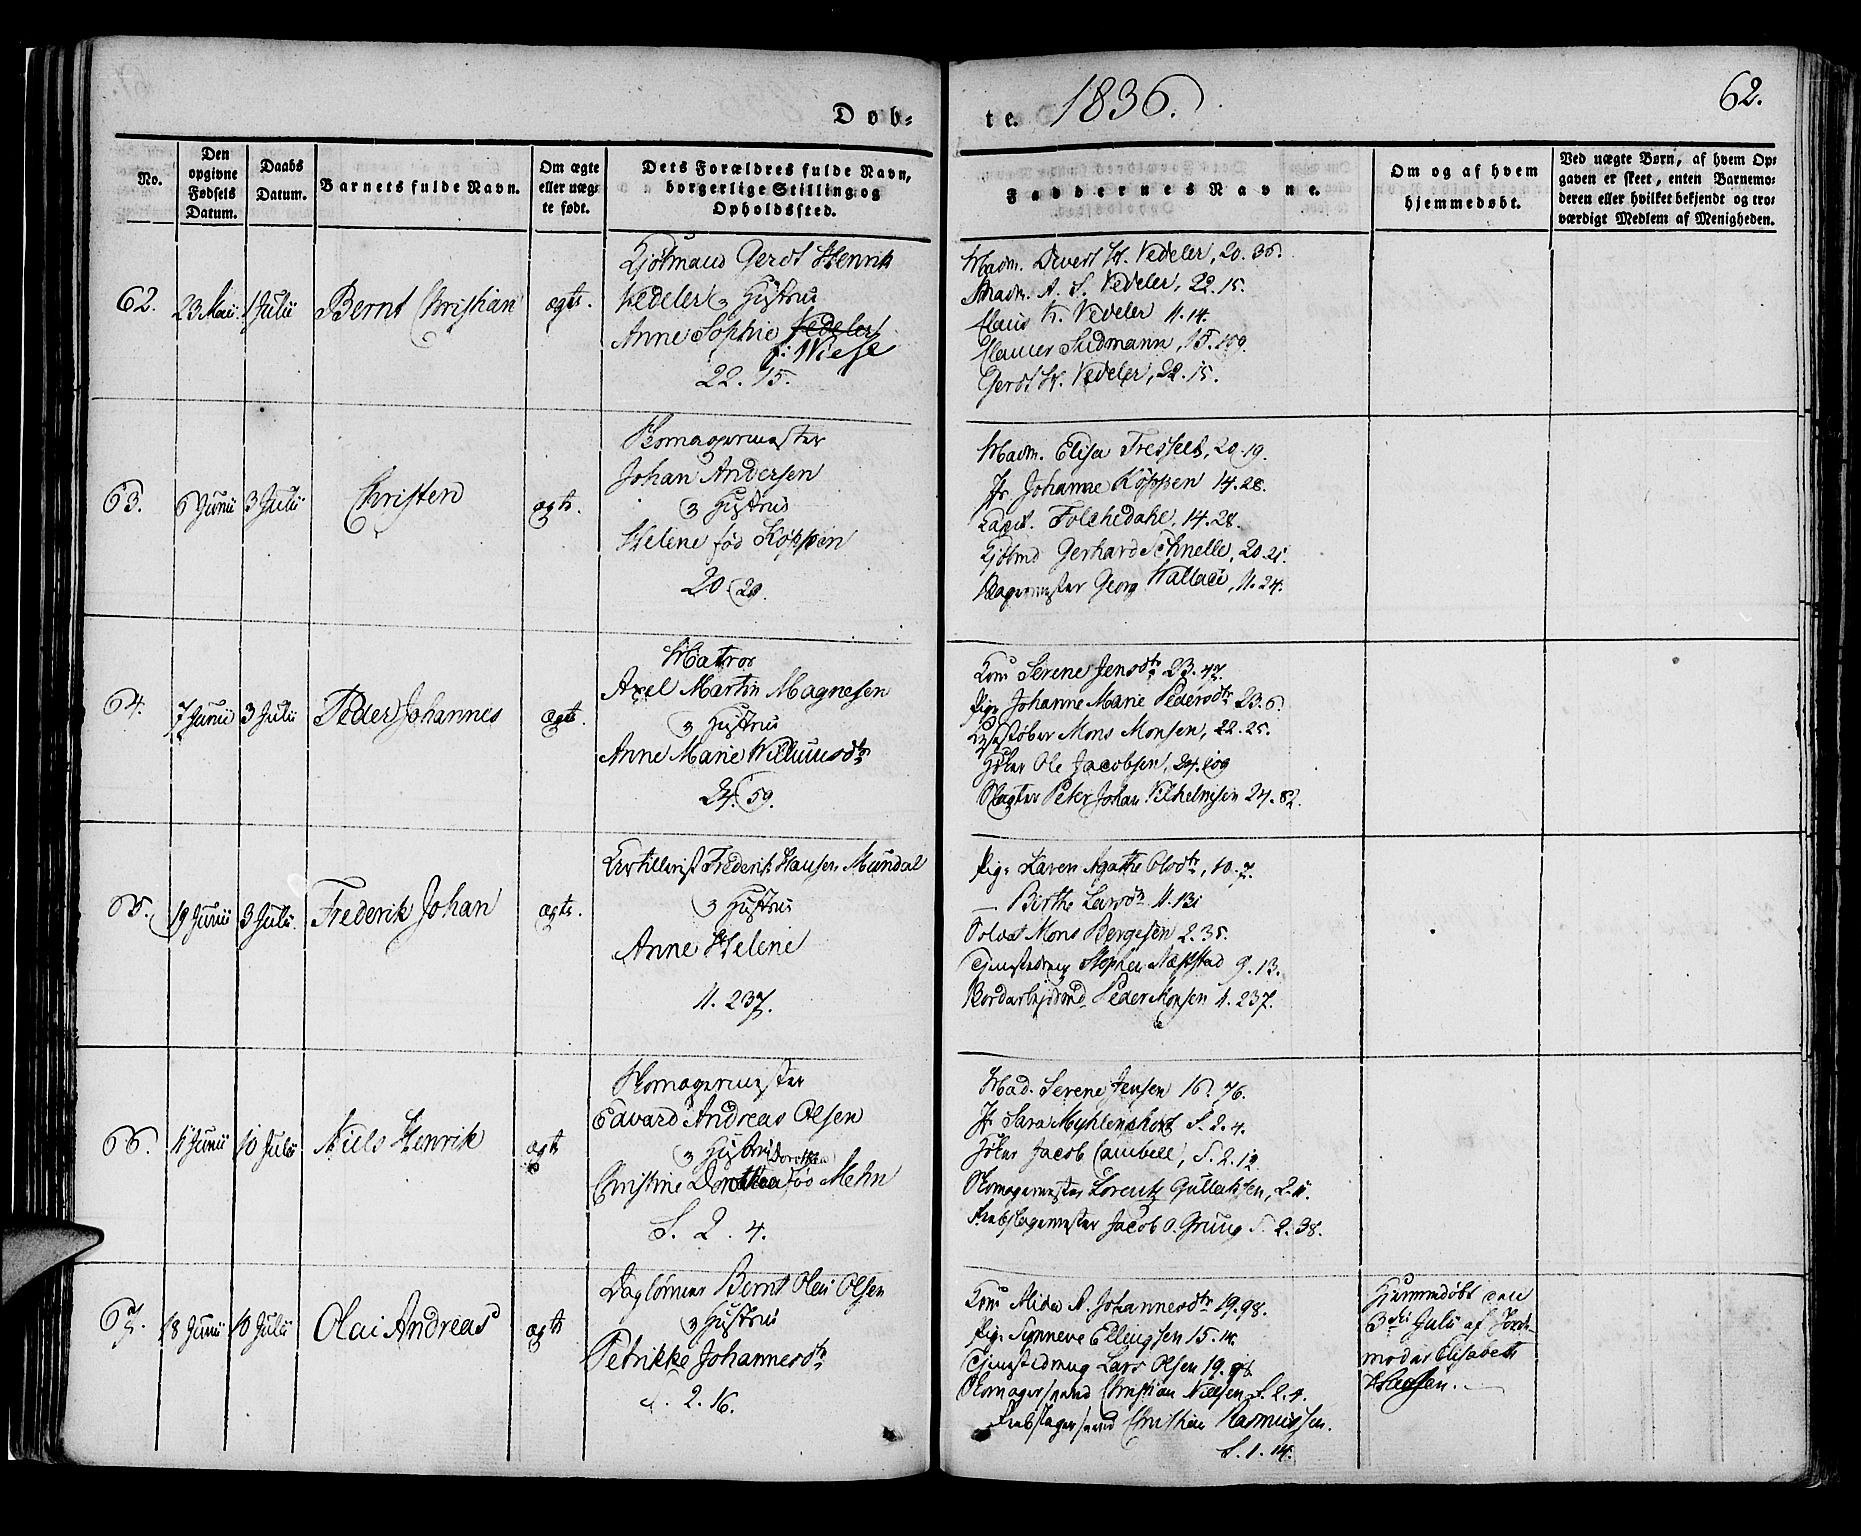 Døb-
te.
1836.
62.
No.
Den opgivne Fødsels Datum.
Daabs Datum.
Barnets fulde Navn.
Om ægte eller uæg- te født.
Dets Forældres fulde Navn, borgerlige Stilling og Opholdssted.
Faddernes Navne.
Om og af hvem hjemmedøbt.
Ved uægte Børn, af hvem Op- gaven er skeet, enten Barnemo- deren eller hvilket bekjendt og tro- værdigt Medlem af Menigheden.
62.
23 Mai
1 Julii
Bernt Christian
ægte.
Kjøbmand Gerdt Henrik
Vedeler, Hustrue
Anne Sophie Vedeler
f: Wiese
22. 15.
Madm. Divert H. Vedeler, 20. 36.
Madm. A. S. Vedeler, 22. 15.
Claus K. Vedeler 11. 14.
Gerdt H. Vedeler, 22. 15.
63.
6 Junii
3 Julii
Christen
ægte.
Skomagermester
Johan Andersen
Hustrue
Helene fød Køppen
20. 29.
Madm. Elisa 20. 19.
Jfr. Johanne Køppen 14. 28.
Folchedahl, 14. 28.
Kjøbmd Gerhard Schnelle, 20. 21.
Georg Wallace, 11. 24.
64.
7 Junii
3 Julii
Peder Johannes
ægte.
Matros
Axel Martin Magnesen
Hustrue
Anne Marie Willumsdtr
24. 59.
Kone Serene Jensdtr 23. 47.
Pige Johanne Marie Pedersdtr 23. 6.
Lysestøber Mons Monsen, 22. 25.
Høker Ole Jacobsen, 24. 109
Slagter Peter Johan Vilhelmsen 24. 82.
65.
19 Junii
3 Julii
Frederik Johan
ægte.
Artillerist Frederik Hansen Mundal
Hustrue
Anne Helene
11. 237.
Pige Karen Agathe Olsdtr, 10. 7.
— Birthe Larsdtr 11. 131
Soldat Mons Bergesen 2. 35.
Tjenestedreng 9. 13.
Peder Monsen 11. 237.
66.
11 Junii
10 Julii
Niels Henrik
ægte
Skomagermester
Edvard Andreas Olsen
Hustrue
Dorothea
Christine Dorothea fød Mehn
S. 2. 4.
Mad. Serene Jensen 16. 76.
Jfr Sara Myhlenphort S. 2. 4.
Høker Jacob Cambell, S. 2. 12.
Skomagermester Lorentz Gullachsen, 2. 11.
Rebslagermester Jacob O. Gruug S. 2. 38.
67.
18 Junii
10 Julii
Olai Andreas
ægte
Daglønner Bernt Olai Olsen
Hustrue
Petrikke Johannesdtr
2. 16.
Kone Alida A. Johannesdtr 19. 98.
Pige Synneve Ellingsen 15. 14.
Tjenestedreng Lars Olsen 19.
Skomagersvend Christian Nielsen S. 2. 4.
Rebslagersvend Christian Rasmussen.
S. 1. 14.
Hjemmedøbt den
3die Julii af Jord-
moder Elisabeth